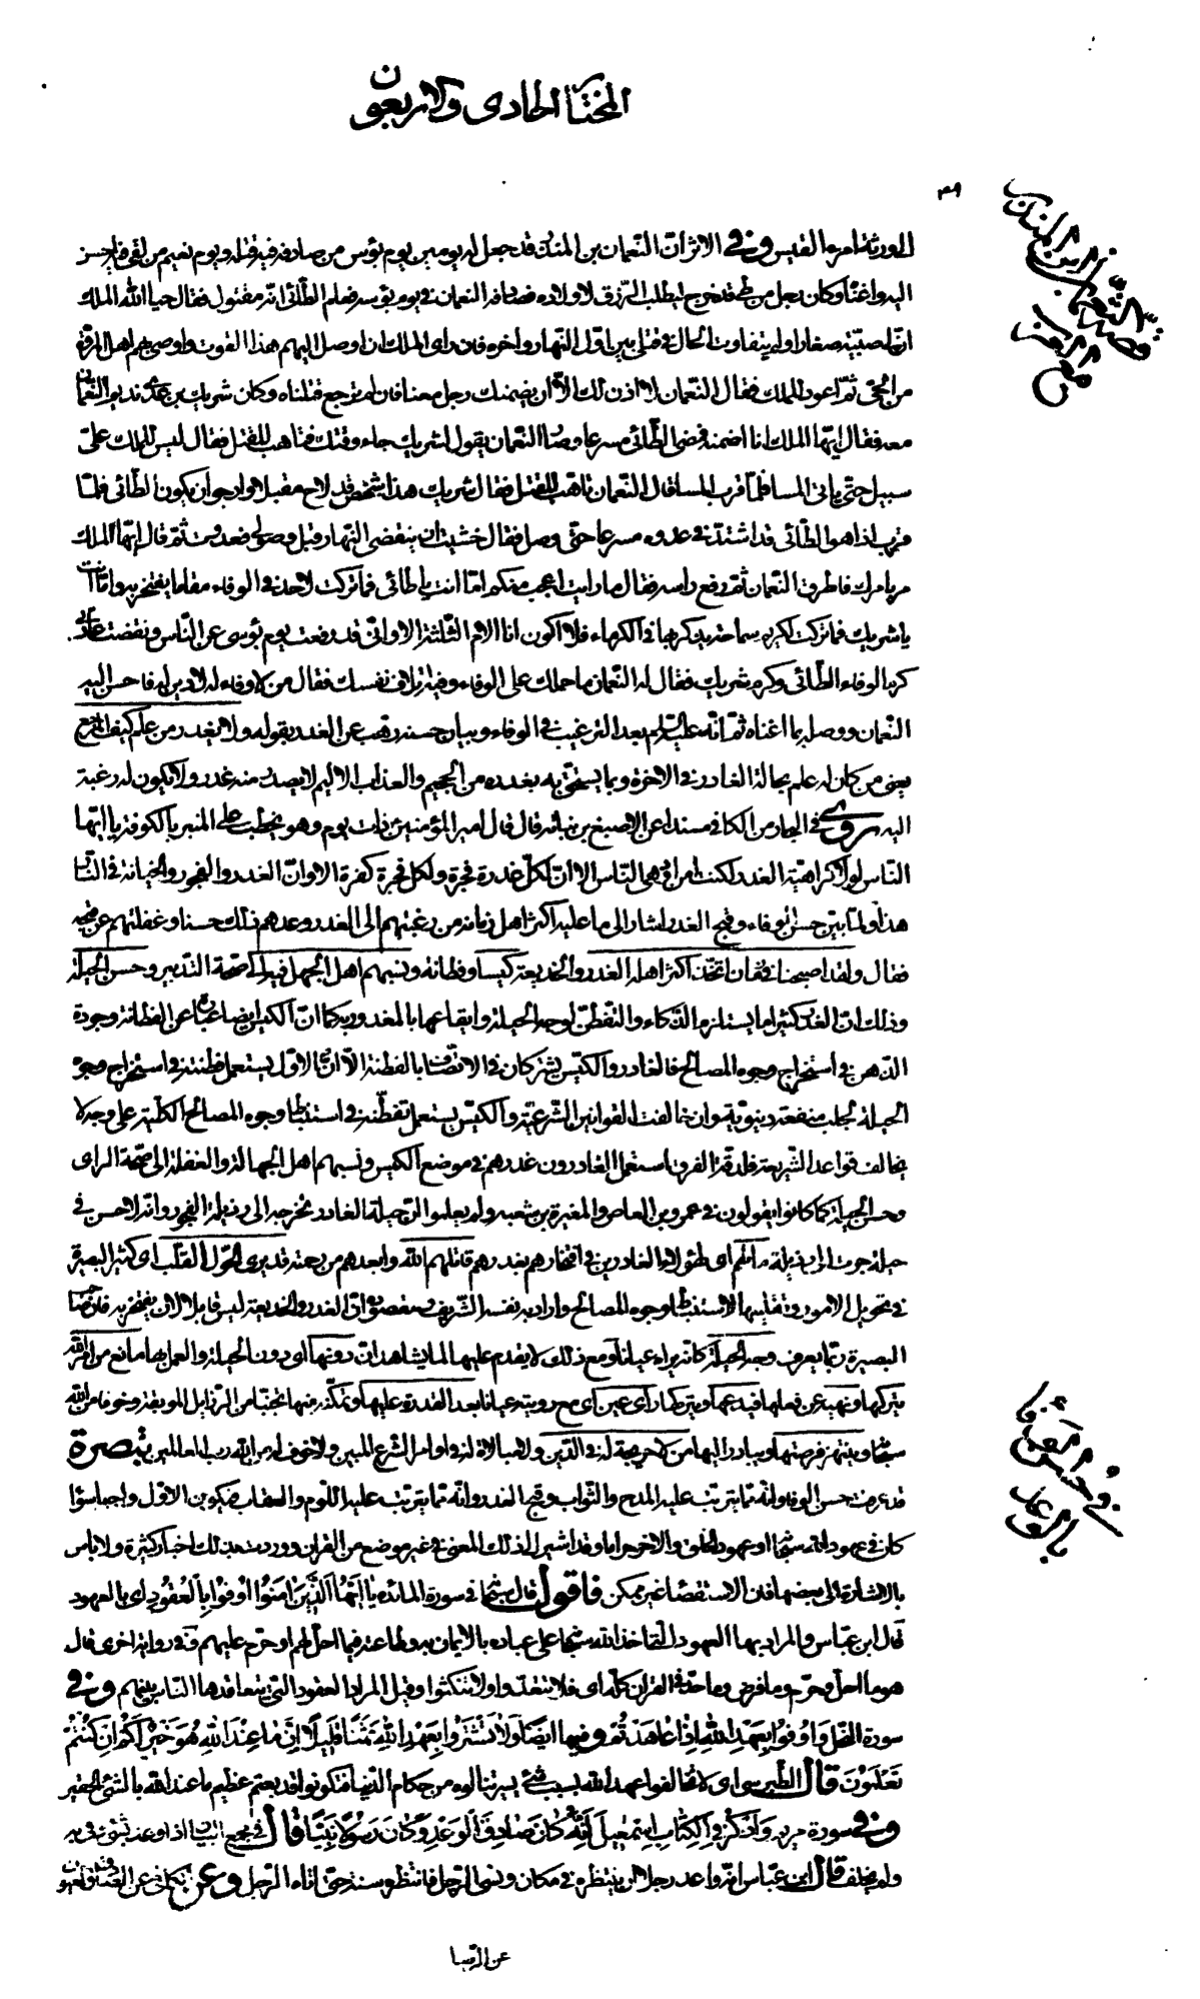 المختار الحادى والاربعون
٣٩
قصة النعمان بن المنذر
فى حسن الوفاء بالوعد
لورثة امرء القيس وفى الاثر انّ النّعمان بن المنذر قد جعل له يومين يوم بؤس من صادفه فيه قتله ويوم نعيم من لقى فيه احسن
اليه واغناه وكان رجل من طىّ قد خرج ليطلب الرّزق لاولاده فصادفه النعمان فى يوم بؤسه فعلم الطّائى انّه مقتول فقال حيا الله الملك
انّ لى صبية صغارا ولم يتفاوت الحال فى قتلى بين اوّل النّهار واخره فان راى الملك ان اوصل اليهم هذا القوت واوصى بهم اهل المروّة
من الحىّ ثمّ اعود للملك فقال النّعمان لا اذن لك الّا ان يضمنك رجل معنا فان لم ترجع قتلناه وكان شريك بن عدىّ نديم النّعمان
معه فقال ايّها الملك انا اضمنه فمضى الطّائى مسرعا وصار النّعمان يقول لشريك جاء وقتك فتاهب للقتل فقال ليس للملك علىّ
سبيل حتّى ياتى المساء فلمّا قرب المساء قال النّعمان تاهب للقتل فقال شريك هذا شخص قد لاح مقبلا وارجو ان يكون الطّائى فلمّا
قرب اذا هو الطّائى قد اشتدّ فى عدوه مسرعا حتّى وصل فقال خشيت ان ينقضى النّهار قبل وصولى فعدوت ثمّ قال ايّها الملك
مر بامرك فاطرق النّعمان ثمّ رفع راسه فقال ما رايت اعجب منكما امّا انت يا طائى فما تركت لاحد فى الوفاء مقاما يفتخر به وامّا انت
يا شريك فما تركت لكريم سماحة يذكر بها فى الكرماء فلا اكون انا الام الثّلثة الا وانّى قد رفعت يوم بؤسى عن النّاس ونقضت عادتى
كرما لوفاء الطّائى وكرم شريك فقال له النّعمان ما حملك على الوفاء وفيه اتلاف نفسك فقال من لا وفاء له لا دين له فاحسن اليه
النّعمان ووصله بما اغناه ثمّ انّه عليه السّلم بعد التّرغيب فى الوفاء وبيان حسنه رهّب عن الغدر بقوله ولا يغدر من علم كيف المرجع
يعنى من كان له علم بحالة الغادر فى الاخرة وبما يستحقّ به بغدره من الجحيم والعذاب الاليم لا يصدر منه غدر ولا يكون له رغبة
اليه روى فى البحار من الكافى مسندا عن الاصبغ بن نباته قال قال امير المؤمنين ذات يوم وهو يخطب على المنبر بالكوفة يا ايّها
النّاس لولا كراهية الغدر لكنت من ادهى النّاس الا انّ لكلّ غدرة فجرة ولكلّ فجرة كفرة الا وانّ الغدر والفجور والخيانة فى النّار
هذا ولمّا بيّن حسن الوفاء وقبح الغدر اشار الى ما عليه اكثر اهل زمانه من رغبتهم الى الغدر وعدهم ذلك حسنا وغفلتهم عن قبحه
فقال ولقد اصبحنا فى زمان اتّخذ اكثر اهله الغدر والخديعة كيسا وفطانة ونسبهم اهل الجهل فيه الى صحّة التّدبير وحسن الحيلة
وذلك انّ الغدر كثيرا ما يستلزم الذّكاء والتّفطّن لوجه الحيلة وايقاعها بالمغدور به كما انّ الكيس ايضا عبارة عن الفطانة وجودة
الذّهن فى استخراج وجوه المصالح فالغادر والكيّس يشتركان فى الاتّصاف بالفطنة الّا انّ الاوّل يستعمل فطنته فى استخراج وجوه
الحيلة لجلب منفعة دنيويّة وان خالفت القوانين الشّرعيّة والكيّس يستعمل تفطّنه فى استنباط وجوه المصالح الكلّية على وجه لا
يخالف قواعد الشّريعة فلدقّة الفرق استعمل الغادرون غدرهم فى موضع الكيس ونسبهم اهل الجهالة والغفلة الى صحّة الراى
وحسن الحيلة كما كانوا يقولون فى عمرو بن العاص والمغيرة بن شعبة ولم يعلموا انّ حيلة الغادر تخرجه الى رذيلة الفجور وانّه لا حسن فى
حيلة جرت الى رذيلة ما لهم اى هؤلاء الغادرين فى افتخارهم بغدرهم قاتلهم الله وابعدهم من رحمته قد يرى الحوّل القلّب اى كثير البصيرة
فى تحويل الامور وتقليبها لاستنباط وجوه المصالح واراد به نفسه الشّريف ومقصوده انّ الغدر والخديعة ليس قابلا لان يفتخر به فانّ صاحب
البصيرة ربّما يعرف وجه الحيلة كانّه يراه عيانا ومع ذلك لا يقدم عليها لما يشاهد انّ دونها اى دون الحيلة والعمل بها مانع من امر الله
بتركها ونهيه عن فعلها فيدعها ويتركها راى عين اى مع رؤيته عيانا بعد القدرة عليها وتمكّنه منها تجنّبا من الرّذايل الموبقة وخوفا من الله
سبحانه وينتهز فرصتها ويبادر اليها من لا حريجة له فى الدّين ولا مبالاة له فى اوامر الشّرع المبين ولا خوف له من الله ربّ العالمين تبصرة
قد عرفت حسن الوفاء وانّه ممّا يترتّب عليه المدح والثّواب وقبح الغدر وانّه ممّا يترتّب عليه اللّوم والعقاب فيكون الاوّل واجبا سواء
كان فى عهود الله سبحانه او عهود الخلق والاخر حراما وقد اشير الى ذلك المعنى فى غير موضع من القران ووردت به ذلك اخبار كثيرة ولا باس
بالاشارة الى بعضها فانّ الاستقصاء غير ممكن فاقول قال سبحانه فى سورة المائدة يا ايّها الّذين امنوا اوفوا بالعقود اى بالعهود
قال ابن عبّاس والمراد بها العهود الّتى اخذ الله سبحانه على عباده بالايمان به وطاعته فيما احلّ لهم او حرّم عليهم وفى رواية اخرى قال
هو ما احلّ وحرّم وما فرض وما حدّ فى القران كلّه اى فلا تتعدّوا ولا تنكثوا وقيل المراد العقود الّتى يتعاقدها النّاس بينهم وفى
سورة النّحل وَاَوْفُوا بِعَهْدِ اللهِ اِذَا عَاهَدْتُمْ وفيها ايضا وَلَا تَشْتَرُوا بِعَهْدِ اللهِ ثَمَنًا قَلِيلًا اِنَّ مَا عِنْدَ اللهِ هُوَ خَيْرٌ لَكُمْ اِنْ كُنْتُمْ
تَعْلَمُونَ قال الطّبرسى اى لا تخالفوا عهد الله بسبب شئ يسير تنالوه من حطام الدّنيا فتكونوا قد بعتم عظيم ما عند الله بالشّئ الحقير
وفى سورة مريم وَاذْكُرْ فِى الْكِتَابِ اِسْمٰعِيلَ اِنَّهُ كَانَ صَادِقَ الْوَعْدِ وَكَانَ رَسُولًا نَبِيًّا قال فى مجمع البيان اذا وعد بشئ وفى به
ولم يخلف قال ابن عبّاس انّه واعد رجلا ان ينتظره فى مكان ونسى الرّجل فانتظره سنة حتّى اتاه الرّجل وعن الكافى عن الصّادق
عن الرّضا